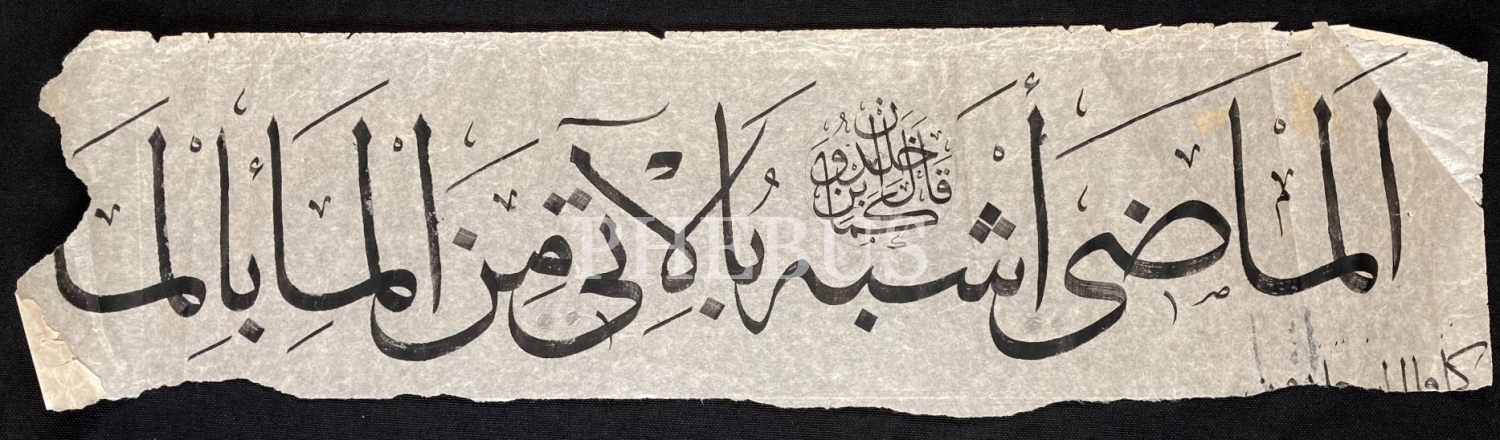 الماضى أشبه بالآتى من الماء بالما
كما قال ابن خلدون
PHEBUS